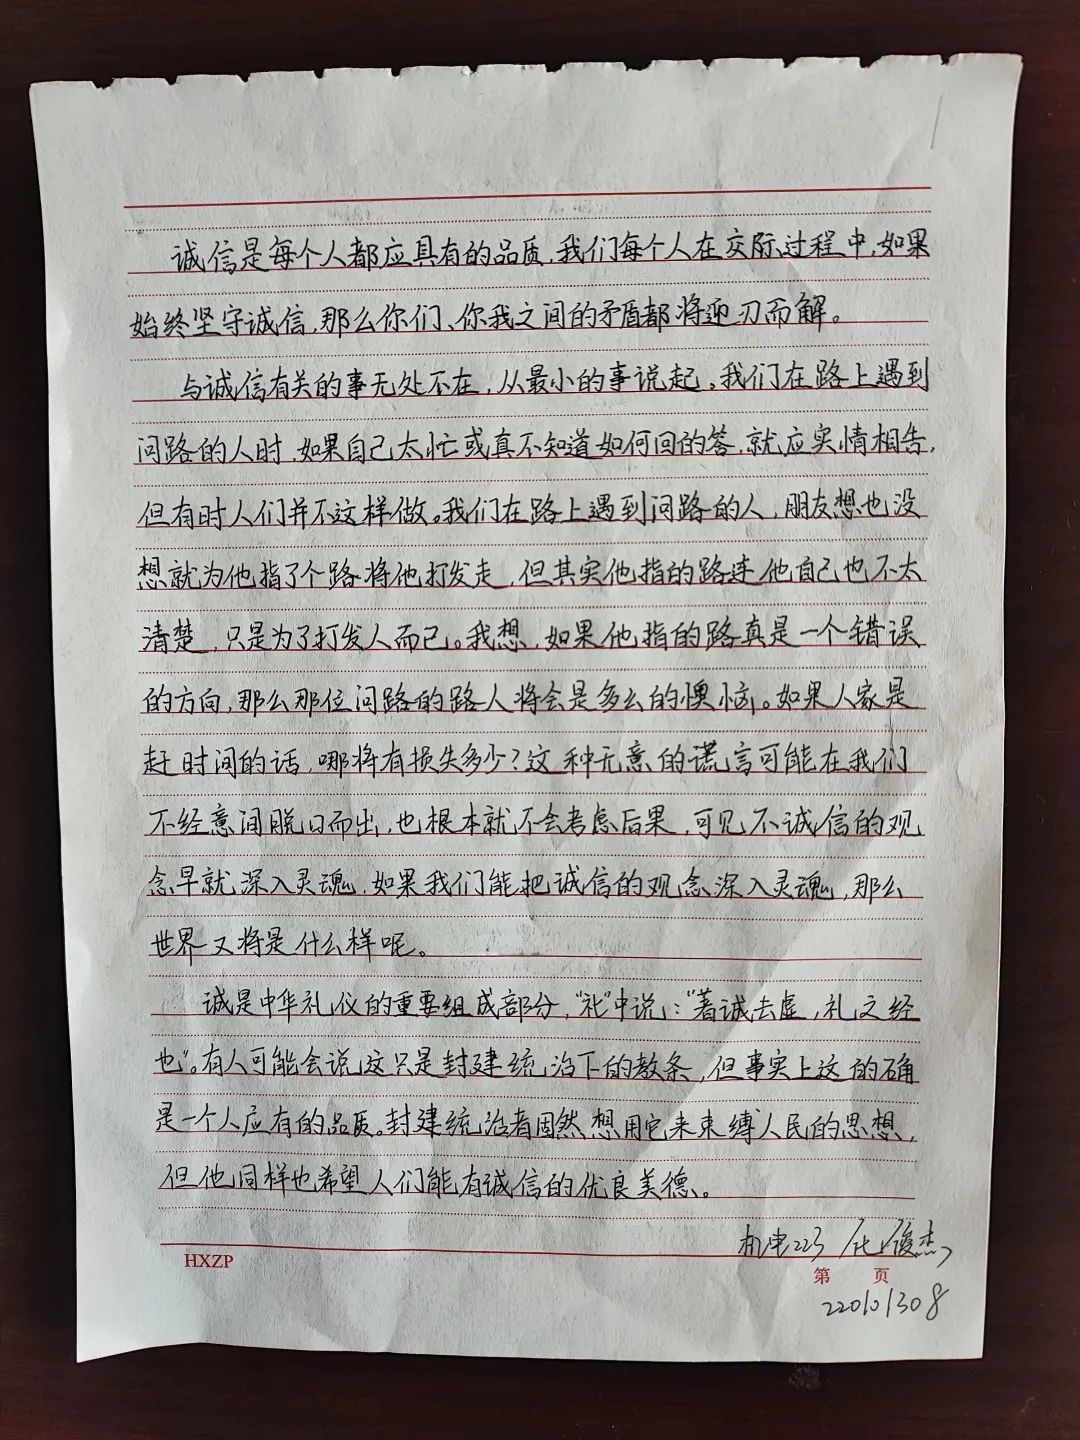 诚信是每个人都应具有的品质,我们每个人在交际过程中,如果
始终坚守诚信,那么你们、你我之间的矛盾都将迎刃而解。
与诚信有关的事无处不在,从最小的事说起。我们在路上遇到
问路的人时,如果自己太忙或真不知道如何回的答,就应实情相告,
但有时人们并不这样做。我们在路上遇到问路的人,朋友想也没
想就为他指了个路将他打发走,但其实他指的路连他自己也不太
清楚,只是为了打发人而已。我想,如果他指的路真是一个错误
的方向,那么那位问路的路人将会是多么的懊恼。如果人家是
赶时间的话,哪将有损失多少?这种无意的谎言可能在我们
不经意间脱口而出,也根本就不会考虑后果,可见不诚信的观
念早就深入灵魂,如果我们能把诚信的观念深入灵魂,那么
世界又将是什么样呢。
诚是中华礼仪的重要组成部分,“礼”中说:“著诚去虚,礼之经
也”。有人可能会说这只是封建统治下的教条,但事实上这的确
是一个人应有的品质。封建统治者固然想用它来束缚人民的思想,
但他同样也希望人们能有诚信的优良美德。
机电223 俊杰
HXZP
第 页
220101308